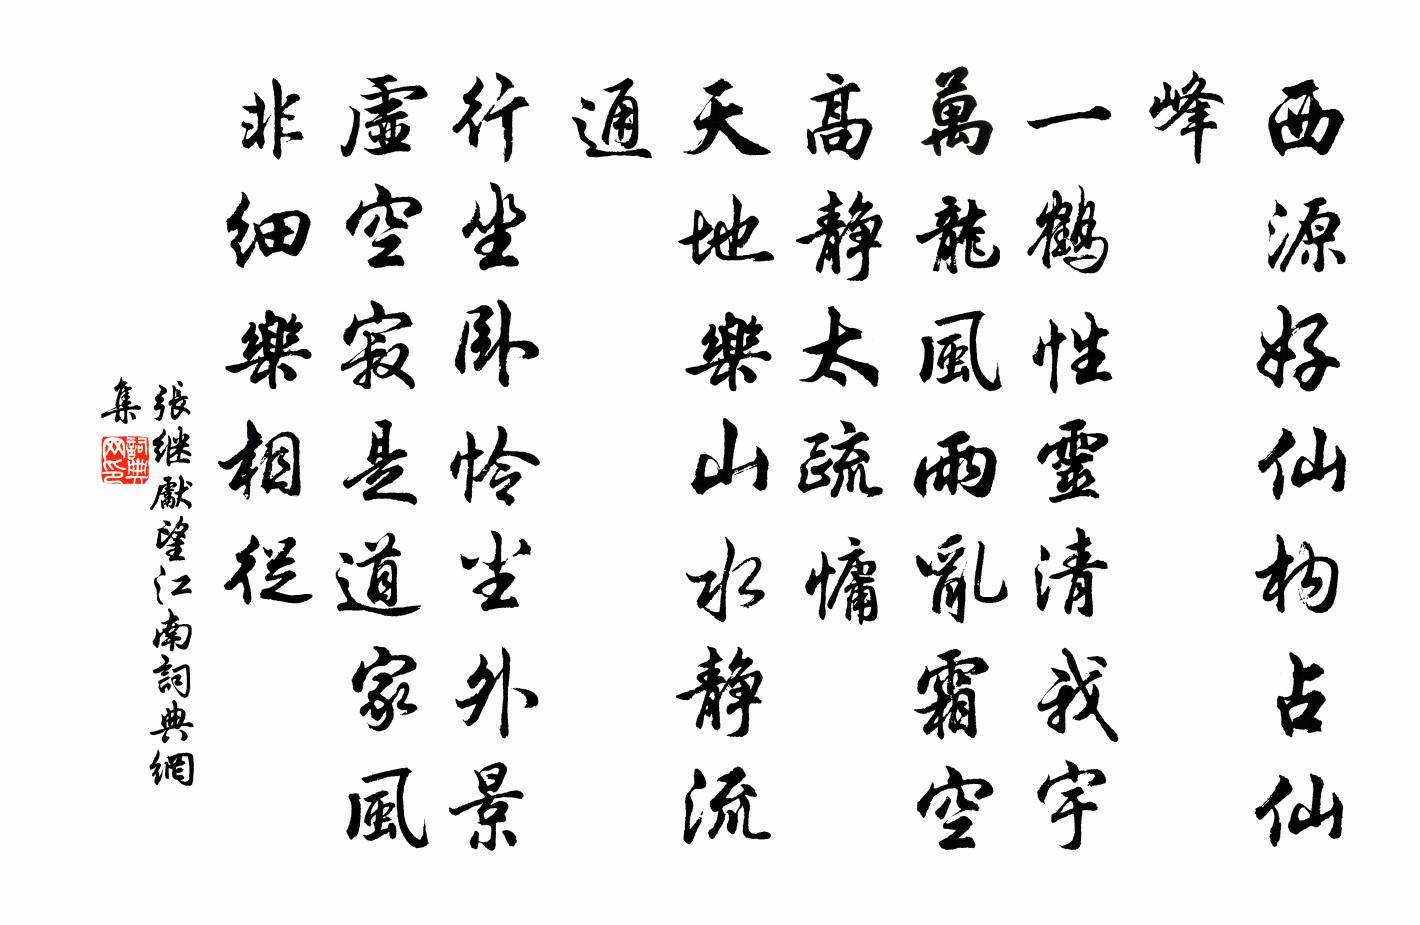 西源好仙构占仙
峰
一鹤性靈清我宇
萬龍風雨亂霜空
高靜太疏慵
天地樂山水靜流
通
行坐卧怜坐外景
虛空寂是道家風
非细樂相從
張继獻望江南詞典網
集
詞典網印